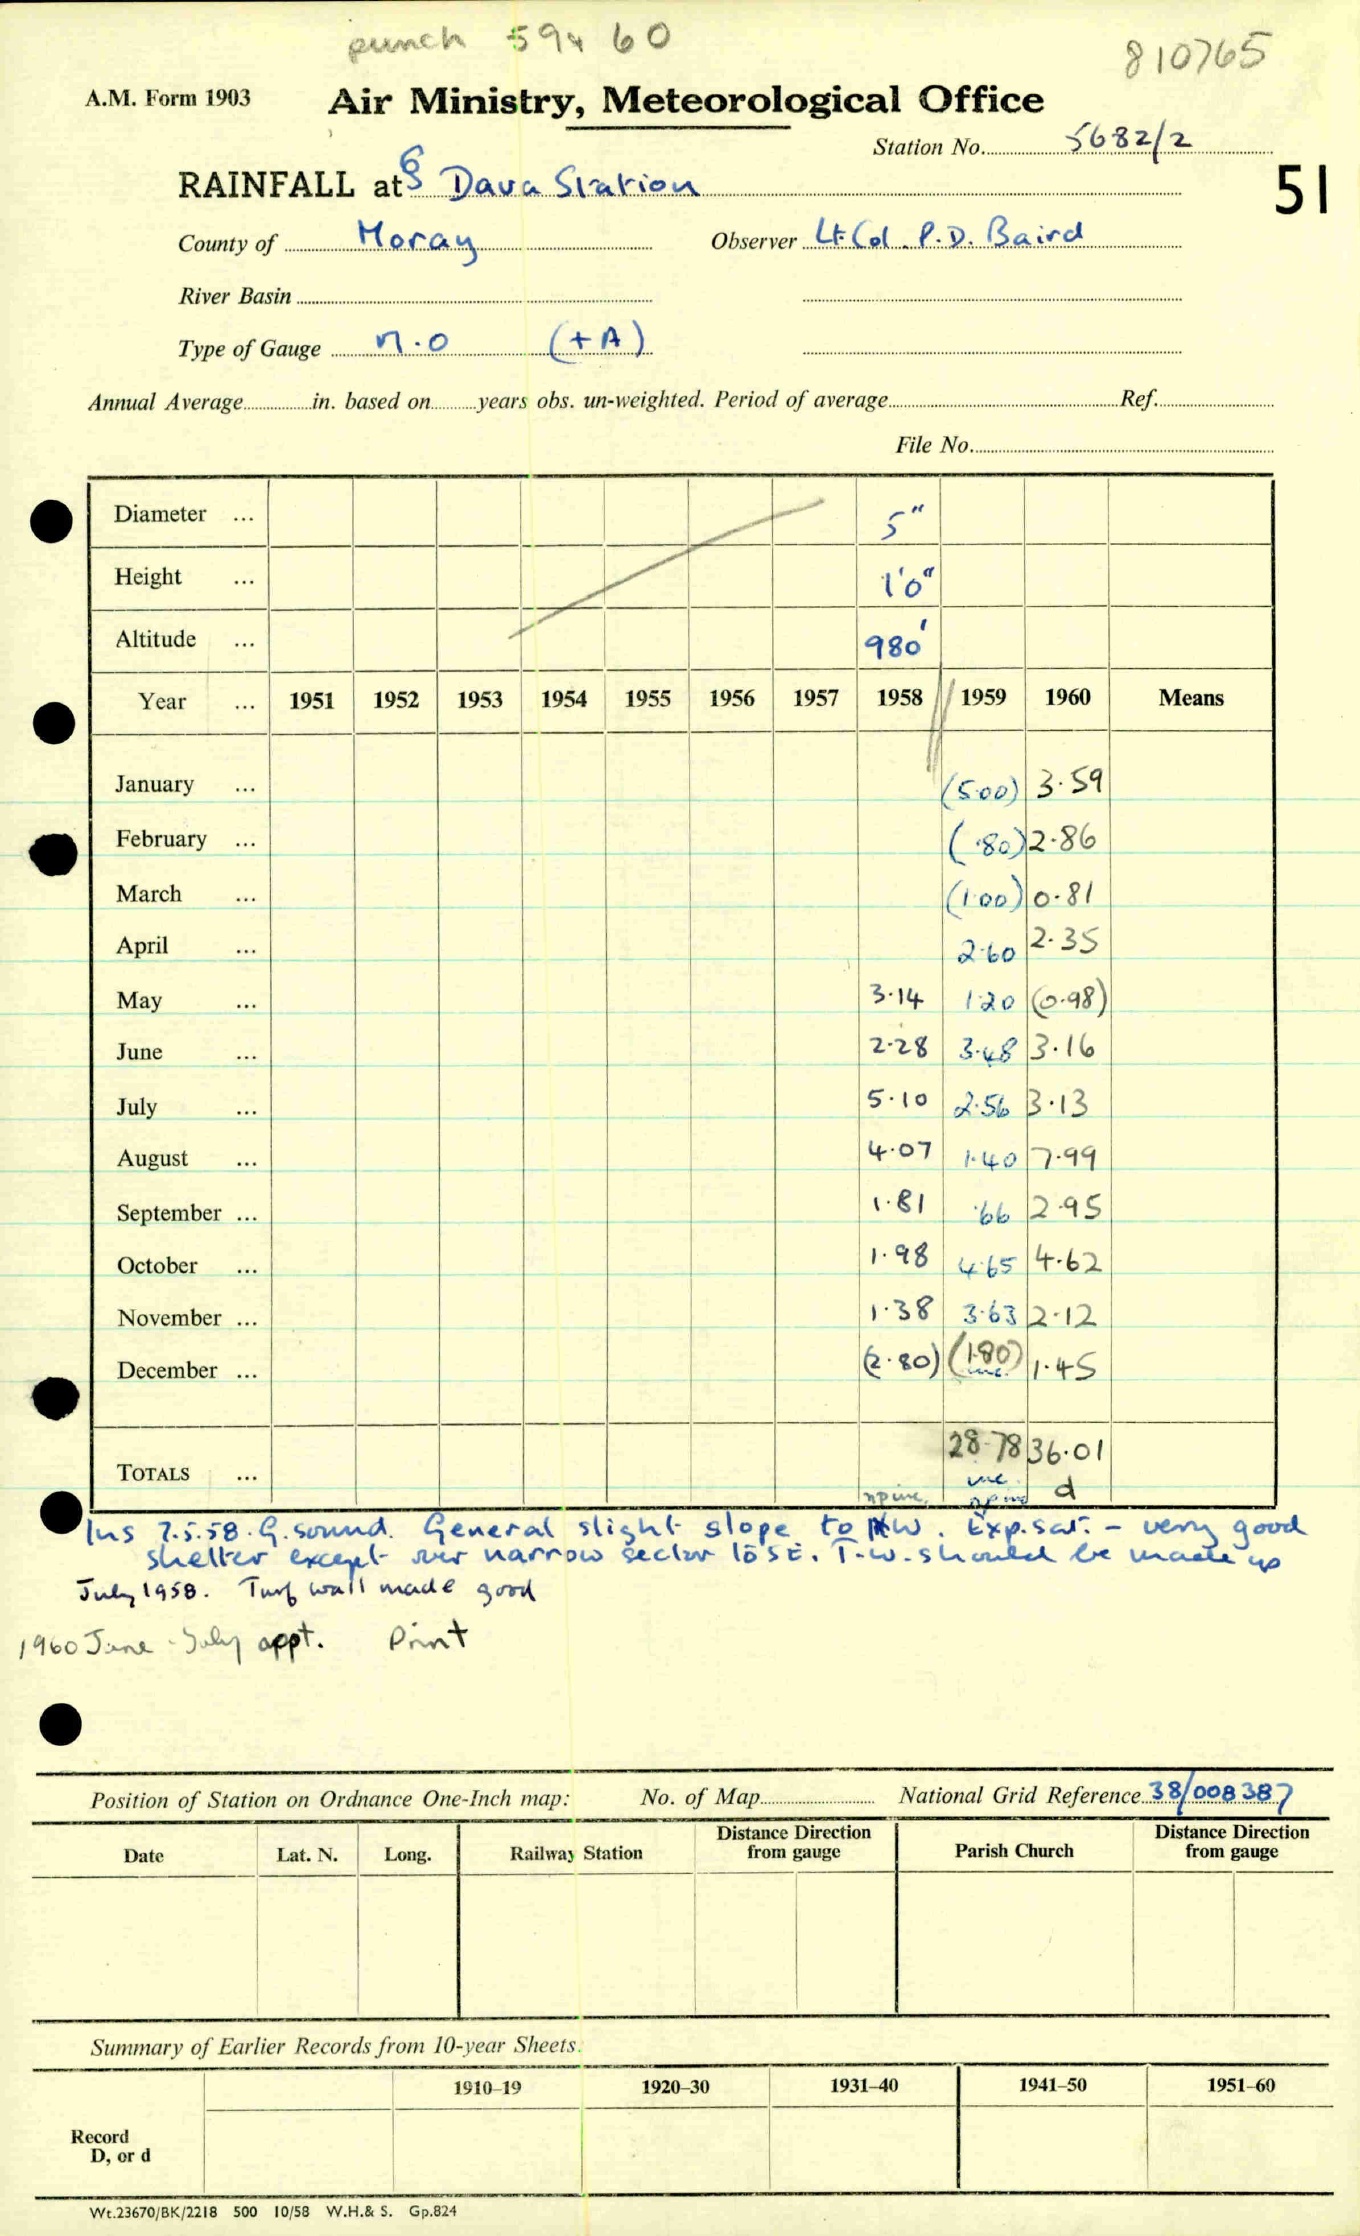 punch 59 & 60
810765
A.M. Form 1903
Air Ministry, Meteorological Office
Station No. 5682/2
51
RAINFALL at § Dava Station
County of Moray Observer Lt. Col. P.D. Baird
River Basin
Type of Gauge M.O (+A)
Annual Average in. based on years obs. un-weighted. Period of average Ref.
File No.
Diameter ... 5"
Height ... 1'0"
Altitude ... 980'
Year ... 1951 1952 1953 1954 1955 1956 1957 1958 1959 1960 Means
January ... (5.00) 3.59
February ... (.80) 2.86
March ... (1.00) 0.81
April ... 2.60 2.35
May ... 3.14 1.20 (0.98)
June ... 2.28 3.48 3.16
July ... 5.10 2.56 3.13
August ... 4.07 1.40 7.99
September ... 1.81 .66 2.95
October ... 1.98 4.65 4.62
November ... 1.38 3.63 2.12
December ... (2.80) (1.80) inc. 1.45
TOTALS ... 28.78 36.01
inc. d
Ins 7.5.58. G. sound. General slight slope to NW. Exp. sat. - very good
shelter except over narrow sector to SE. T.W. should be made up
July 1958. Turf wall made good
1960 June - July appt. Print
Position of Station on Ordnance One-Inch map: No. of Map National Grid Reference 38/008387
Date Lat. N. Long. Railway Station Distance Direction from gauge Parish Church Distance Direction from gauge
Summary of Earlier Records from 10-year Sheets.
1910-19 1920-30 1931-40 1941-50 1951-60
Record
D, or d
Wt.23670/BK/2218 500 10/58 W.H.& S. Gp.824